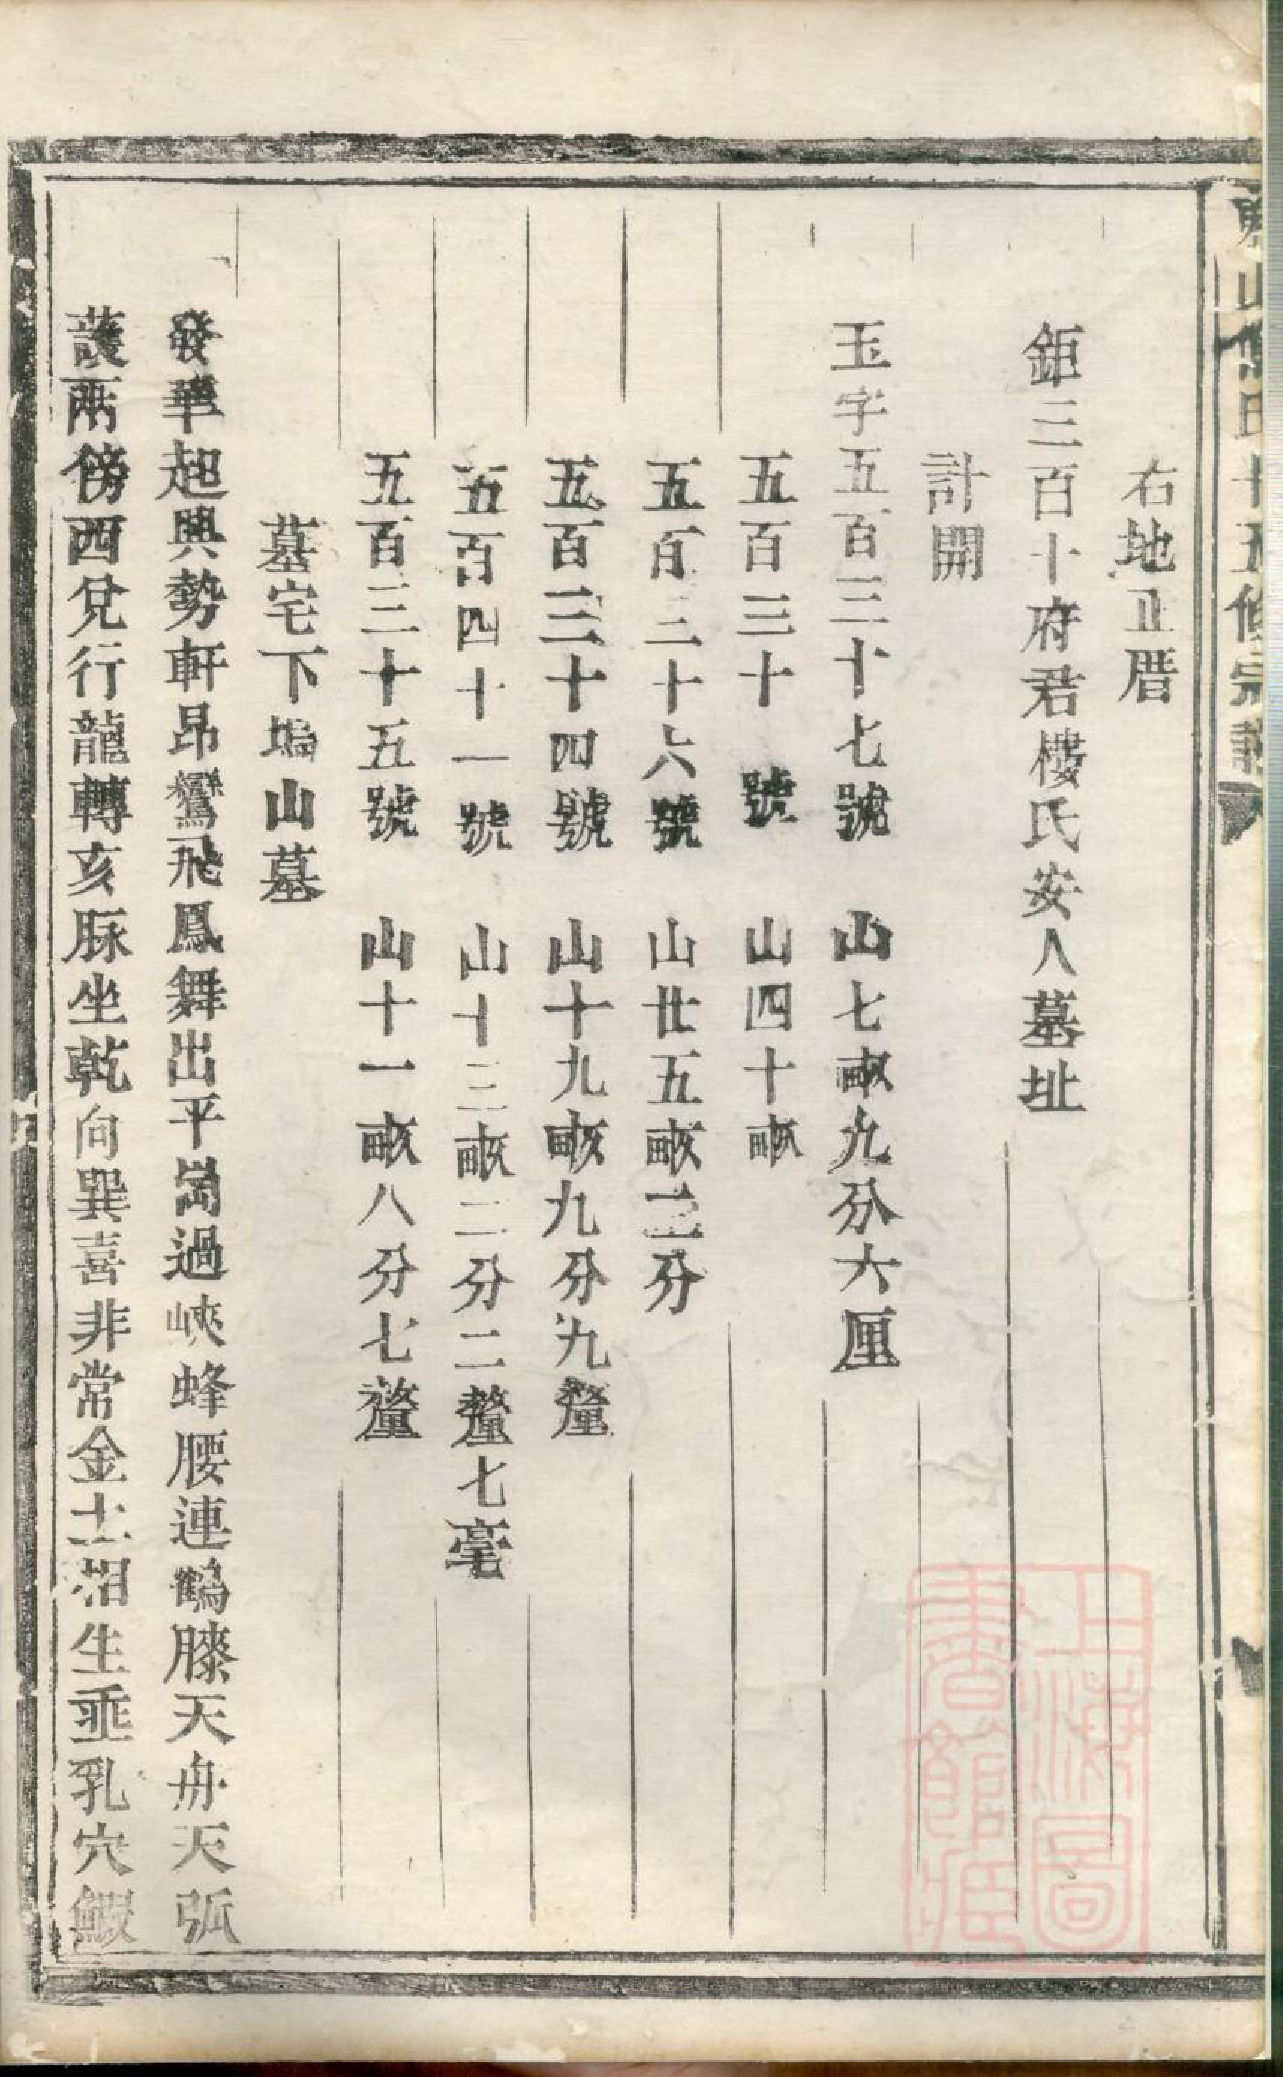 右地正厝
鉅三百十府君樓氏安人墓址
計開
玉字五百三十七號 山七畝九分六厘
五百三十號 山四十畝
五百二十六號 山廿五畝三分
五百三十四號 山十九畝九分九釐
五百四十一號 山十三畝二分二釐七毫
五百三十五號 山十一畝八分七釐
墓宅下塢山墓
發華起興勢軒昂鸞飛鳳舞出平崗過峽蜂腰連鶴膝天舟天弧
護兩傍西兌行龍轉亥脉坐乾向巽喜非常金土相生垂乳穴鰕
上海圖書館藏